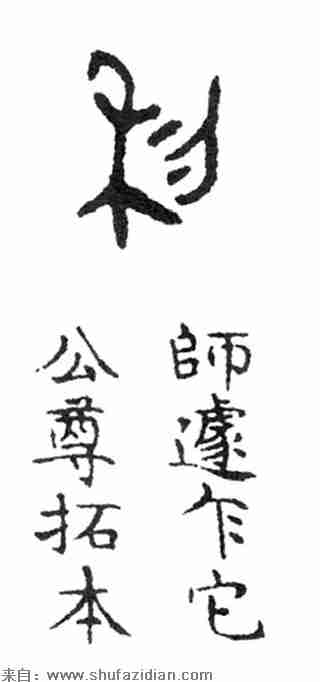 利
師遽乍它
公尊拓本
来自：www.shufazidian.com